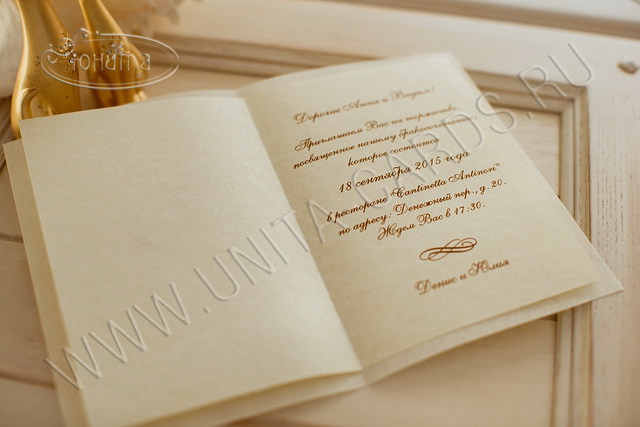 Юнита
Дорогие Анна и Вадим!
Приглашаем Вас на торжество,
посвященное нашему бракосочетанию,
которое состоится
18 сентября 2015 года
в ресторане "Cantinetta Antinori"
по адресу: Денежный пер., д. 20.
Ждем Вас в 17:30.
Денис и Юлия
WWW.UNITA-CARDS.RU